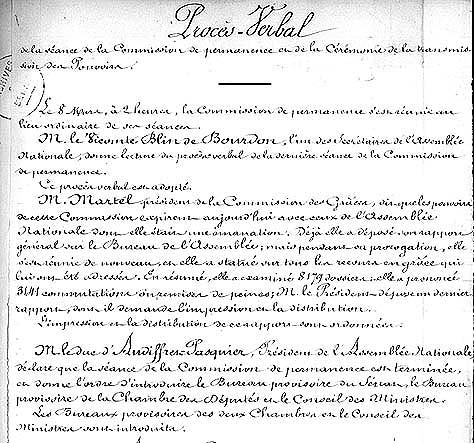 Procès-Verbal
de la séance de la Commission de permanence et de la Cérémonie de la transmis-
sion des Pouvoirs.
Le 8 Mars, à 2 heures, la Commission de permanence s'est réunie au
lieu ordinaire de ses séances.
M. le Vicomte Blin de Bourdon, l'un des Secrétaires de l'Assemblée
Nationale, donne lecture du procès verbal de la dernière séance de la Commission
de permanence.
Ce procès verbal est adopté.
M. Martel, président de la Commission des Grâces, dit que les pouvoirs
de cette Commission expirent aujourd'hui avec ceux de l'Assemblée
Nationale dont elle était une émanation. Déjà elle a déposé un rapport
général sur le Bureau de l'Assemblée; mais pendant sa prorogation, elle
s'est réunie de nouveau, et elle a statué sur tous les recours en grâce qui
lui ont été adressés. En résumé, elle a examiné 8179 dossiers, elle a prononcé
3141 commutations ou remises de peines; M. le Président dépose un dernier
rapport, dont il demande l'impression et la distribution.
L'impression et la distribution de ce rapport sont ordonnées.
M. le duc d'Audiffret-Pasquier, Président de l'Assemblée Nationale
déclare que la séance de la Commission de permanence est terminée,
et donne l'ordre d'introduire le Bureau provisoire du Sénat, le Bureau
provisoire de la Chambre des Députés et le Conseil des Ministres.
Les Bureaux provisoires des deux Chambres et le Conseil des
Ministres sont introduits.